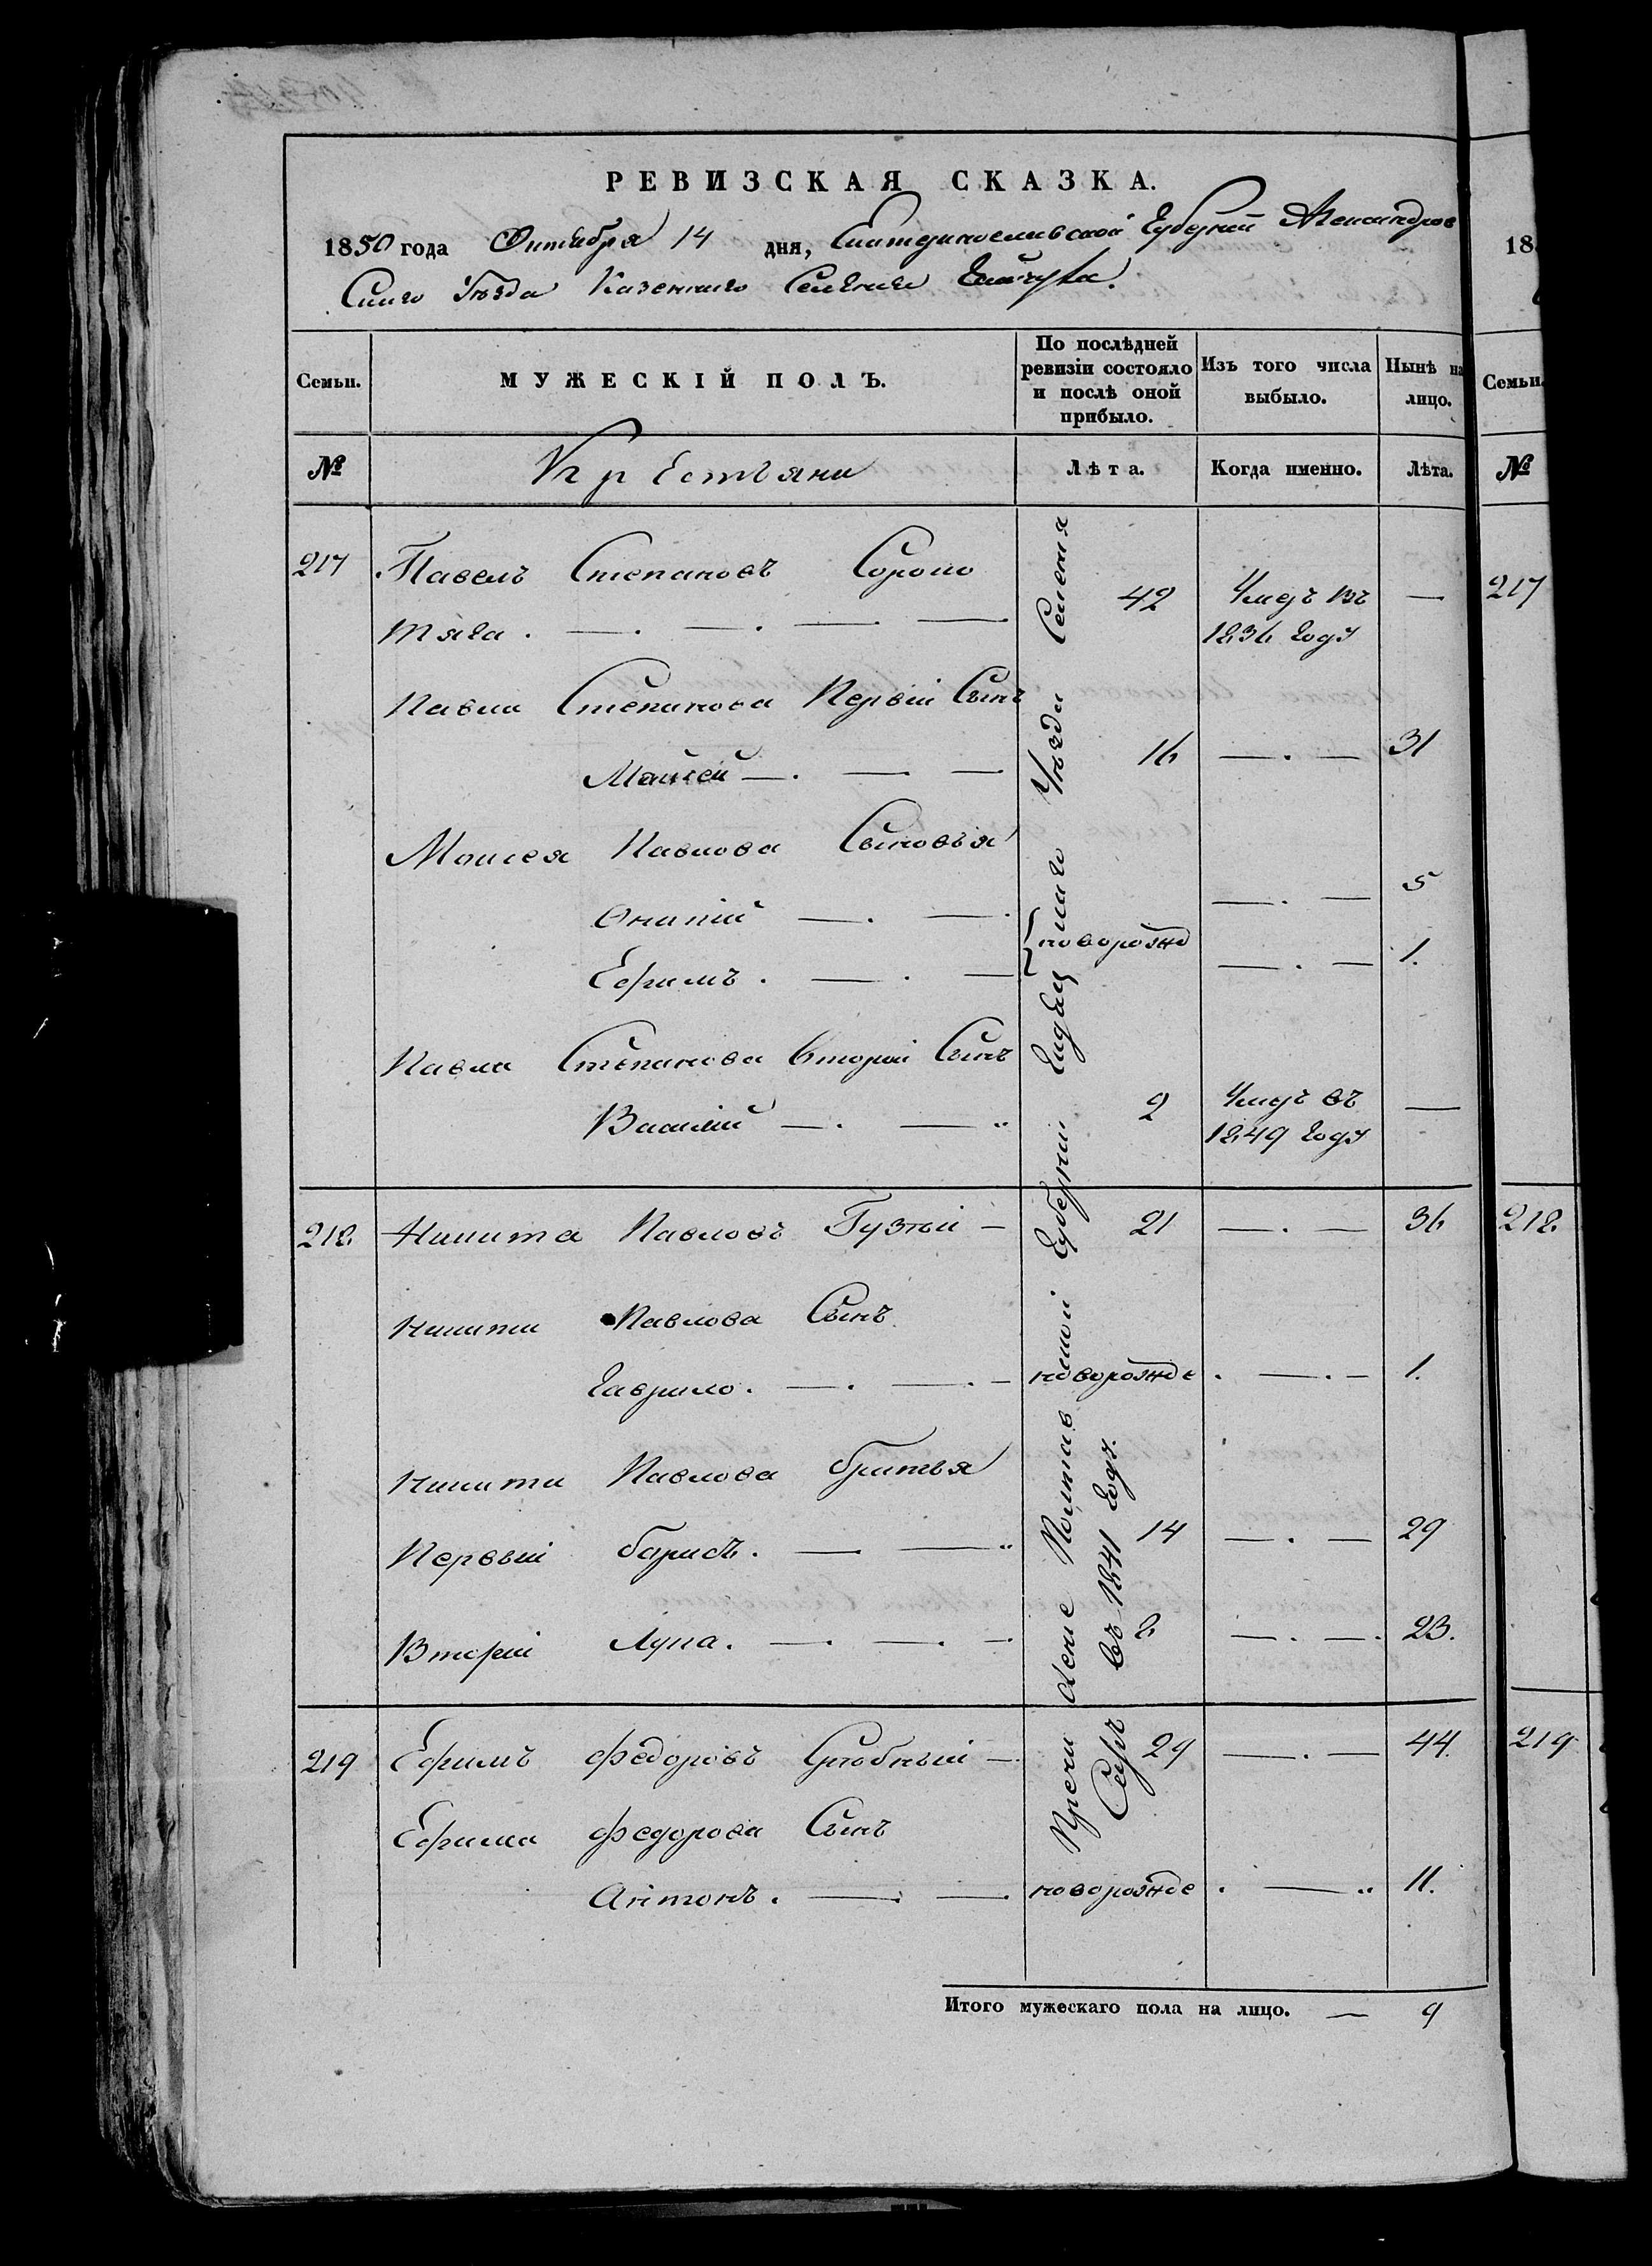 РЕВИЗСКАЯ СКАЗКА.
1850 года Октября 14 дня, Екатеринославской Губерніи Александров
Скаго Уѣзда Казеннаго Селенія Гайчула.
Семьи. МУЖЕСКІЙ ПОЛЪ. По послѣдней ревизіи состояло и послѣ оной прибыло. Изъ того числа выбыло. Нынѣ на лицо.
№ Крестьяни Лѣта. Когда именно. Лѣта.
217 Павелъ Степановъ Сороко 42 Умеръ въ —
тяга . 1836 году
Павла Степанова Первій Сынъ
Мойсей 16 — 31
Моисея Павлова Сыновья
Онапій — 5
новорожд
Ефимъ . — 1.
Павла Степанова Вторій Сынъ
Василій 2 Умеръ въ —
1849 году
218 Никита Павловъ Гузтій 21 — 36
Никити Павлова Сынъ
Гаврило . новорожде . — 1.
Никити Павлова братья
Первый барисъ . 14 — 29
Вторій Лука . 8 — 23.
219 Ефимъ Федоровъ 29 — 44.
Ефима Федорова Сынъ
Антонъ . новорожде . — 11.
Пречисленіе Полтавской Губерніи Уѣзда Селенія
въ 1841 годѣ.
Итого мужескаго пола на лицо. — 9
18
Семьи.
№
217
218
219